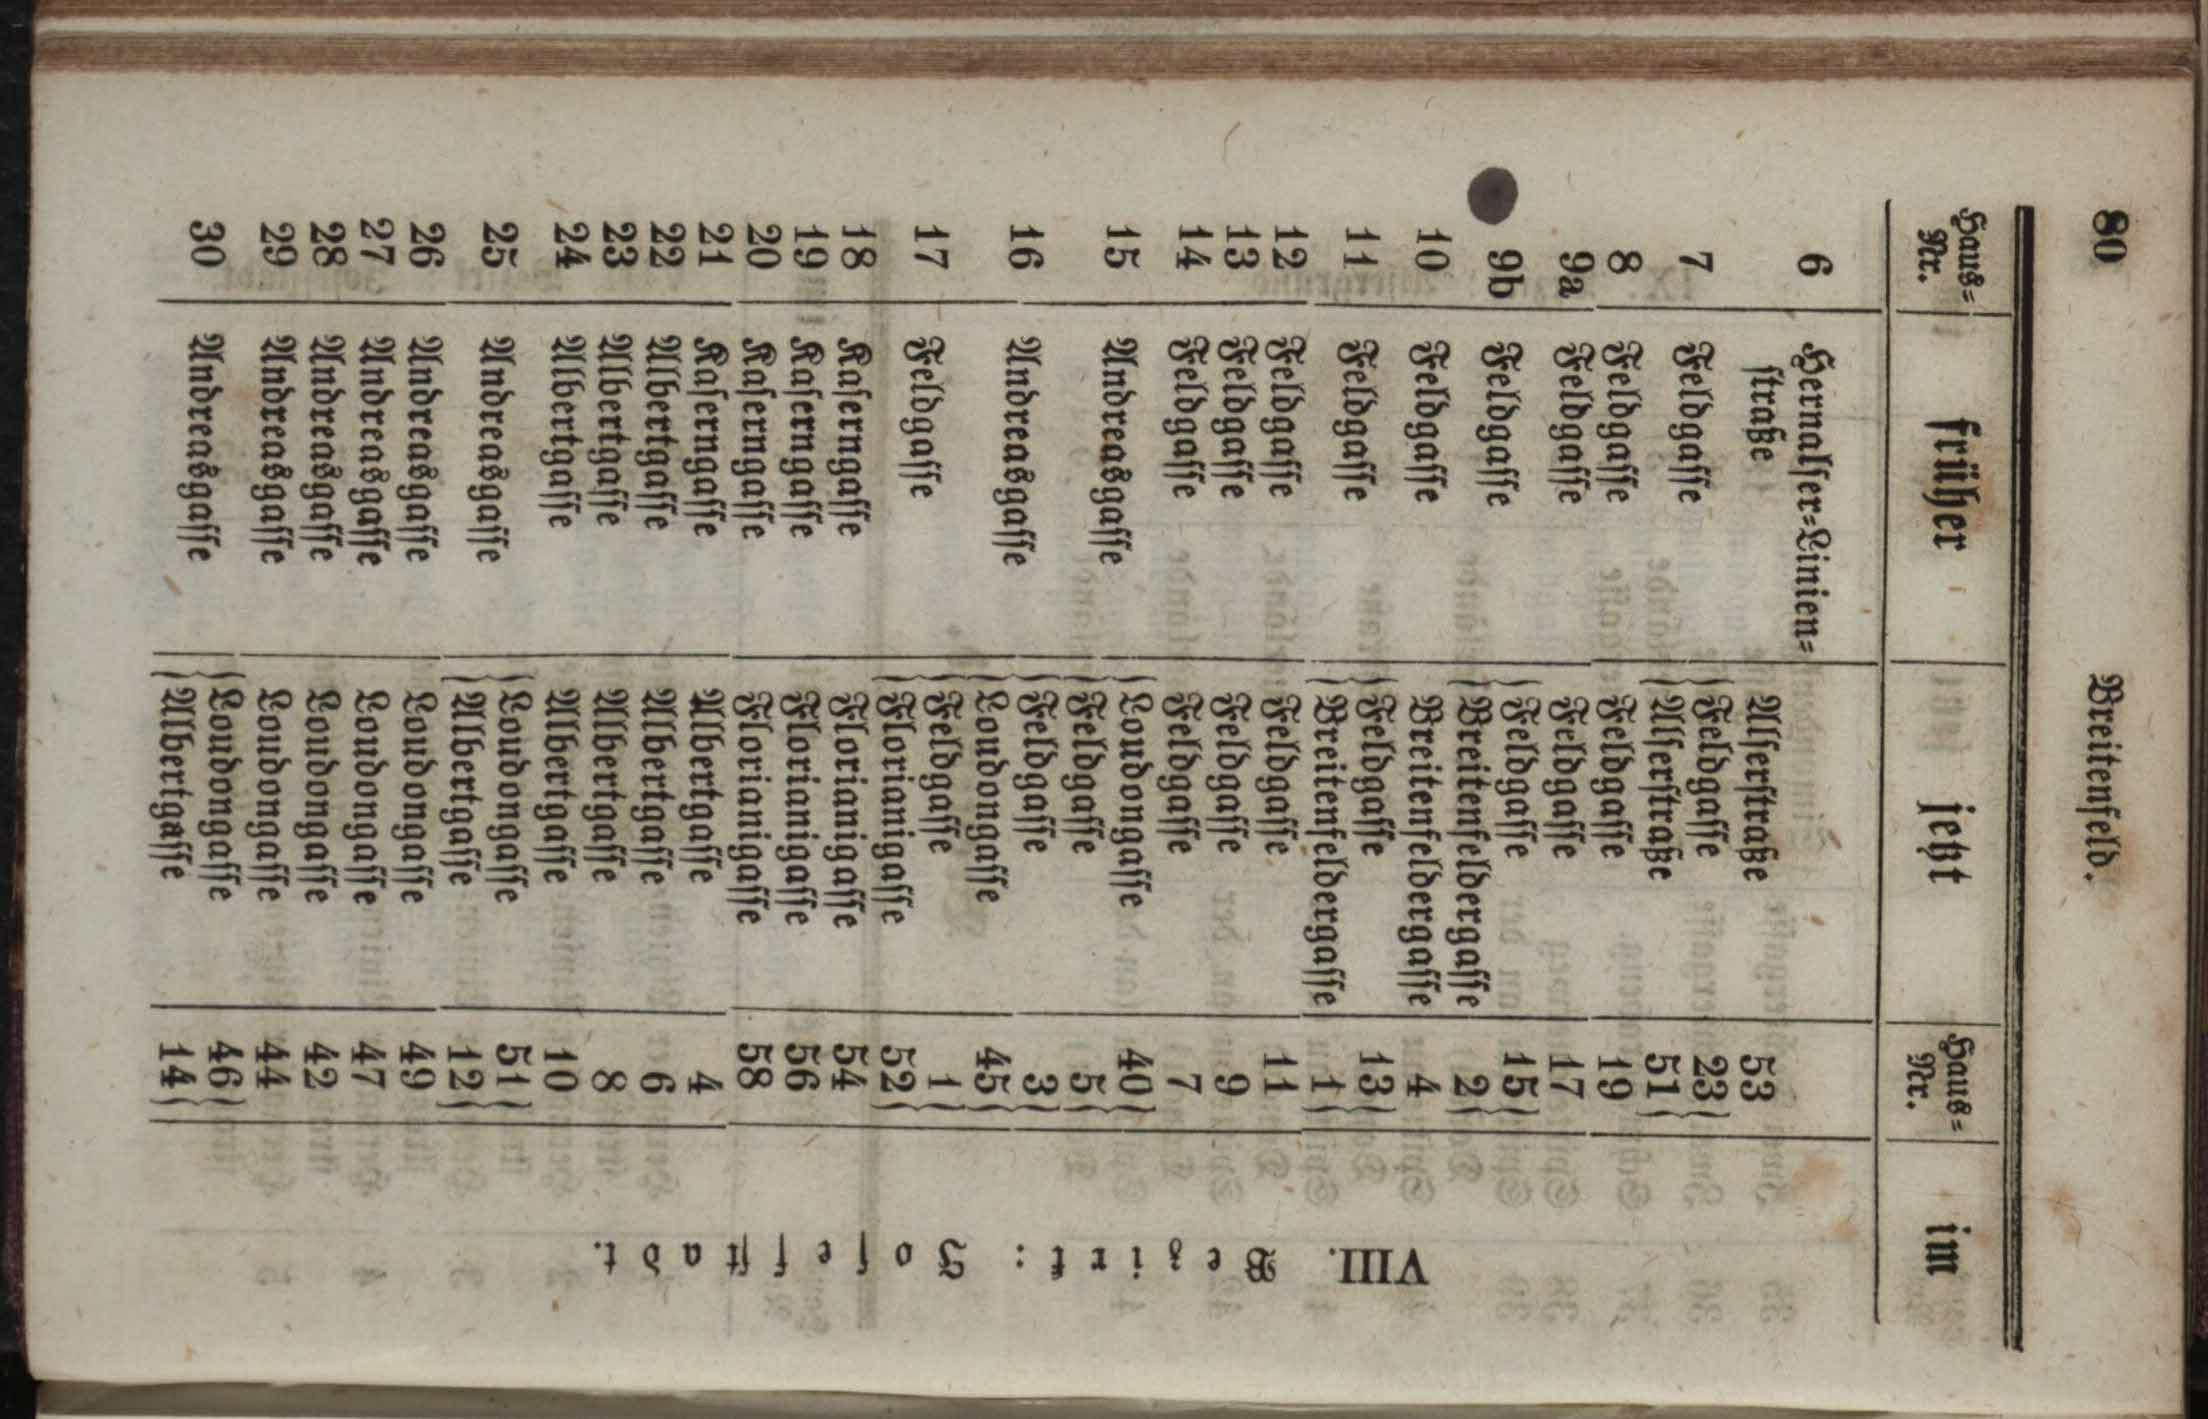 80 Breitenfeld.
Haus= Nr. früher jetzt Haus= Nr. im
6 Hernalser=Linien=
straße Alserstraße 53
7 Feldgasse { Feldgasse 23 }
{ Alserstraße 51 }
8 Feldgasse Feldgasse 19
9a Feldgasse Feldgasse 17
9b Feldgasse { Feldgasse 15 }
{ Breitenfeldergasse 2 }
10 Feldgasse Breitenfeldergasse 4
11 Feldgasse { Feldgasse 13 }
{ Breitenfeldergasse 1 }
12 Feldgasse Feldgasse 11
13 Feldgasse Feldgasse 9
14 Feldgasse Feldgasse 7
15 Andreasgasse { Loudongasse 40 }
{ Feldgasse 5 }
16 Andreasgasse { Feldgasse 3 }
{ Loudongasse 45 }
17 Feldgasse { Feldgasse 1 }
{ Florianigasse 52 }
18 Kaserngasse Florianigasse 54
19 Kaserngasse Florianigasse 56
20 Kaserngasse Florianigasse 58
21 Kaserngasse Albertgasse 4
22 Albertgasse Albertgasse 6
23 Albertgasse Albertgasse 8
24 Albertgasse Albertgasse 10
25 Andreasgasse { Loudongasse 51 }
{ Albertgasse 12 }
26 Andreasgasse Loudongasse 49
27 Andreasgasse Loudongasse 47
28 Andreasgasse Loudongasse 42
29 Andreasgasse Loudongasse 44
30 Andreasgasse { Loudongasse 46 }
{ Albertgasse 14 }
VIII. Bezirk: Josefstadt.